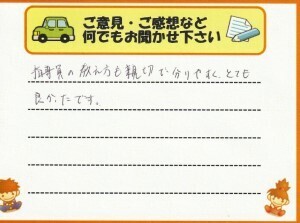 ご意見・ご感想など
何でもお聞かせ下さい
指導員の教え方も親切で分りやすく、とても
良かったです。